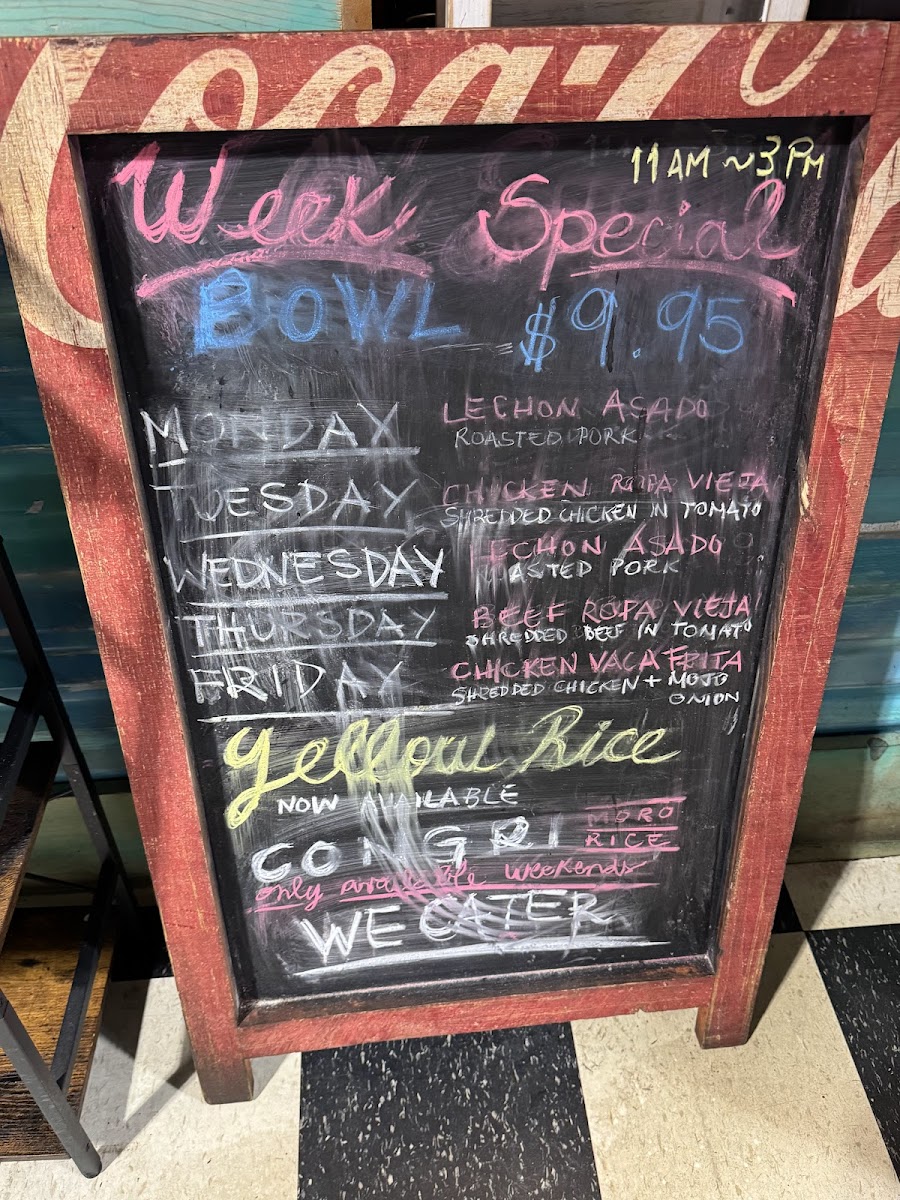 Coca-Co
11 AM ~ 3 PM
Week Special
BOWL $9.95
MONDAY LECHON ASADO
ROASTED PORK
TUESDAY CHICKEN ROPA VIEJA
SHREDDED CHICKEN IN TOMATO
WEDNESDAY LECHON ASADO
ROASTED PORK
THURSDAY BEEF ROPA VIEJA
SHREDDED BEEF IN TOMATO
FRIDAY CHICKEN VACA FRITA
SHREDDED CHICKEN + MOJO
ONION
Yellow Rice
NOW AVAILABLE
CONGRI MORO
RICE
only available weekends
WE CATER